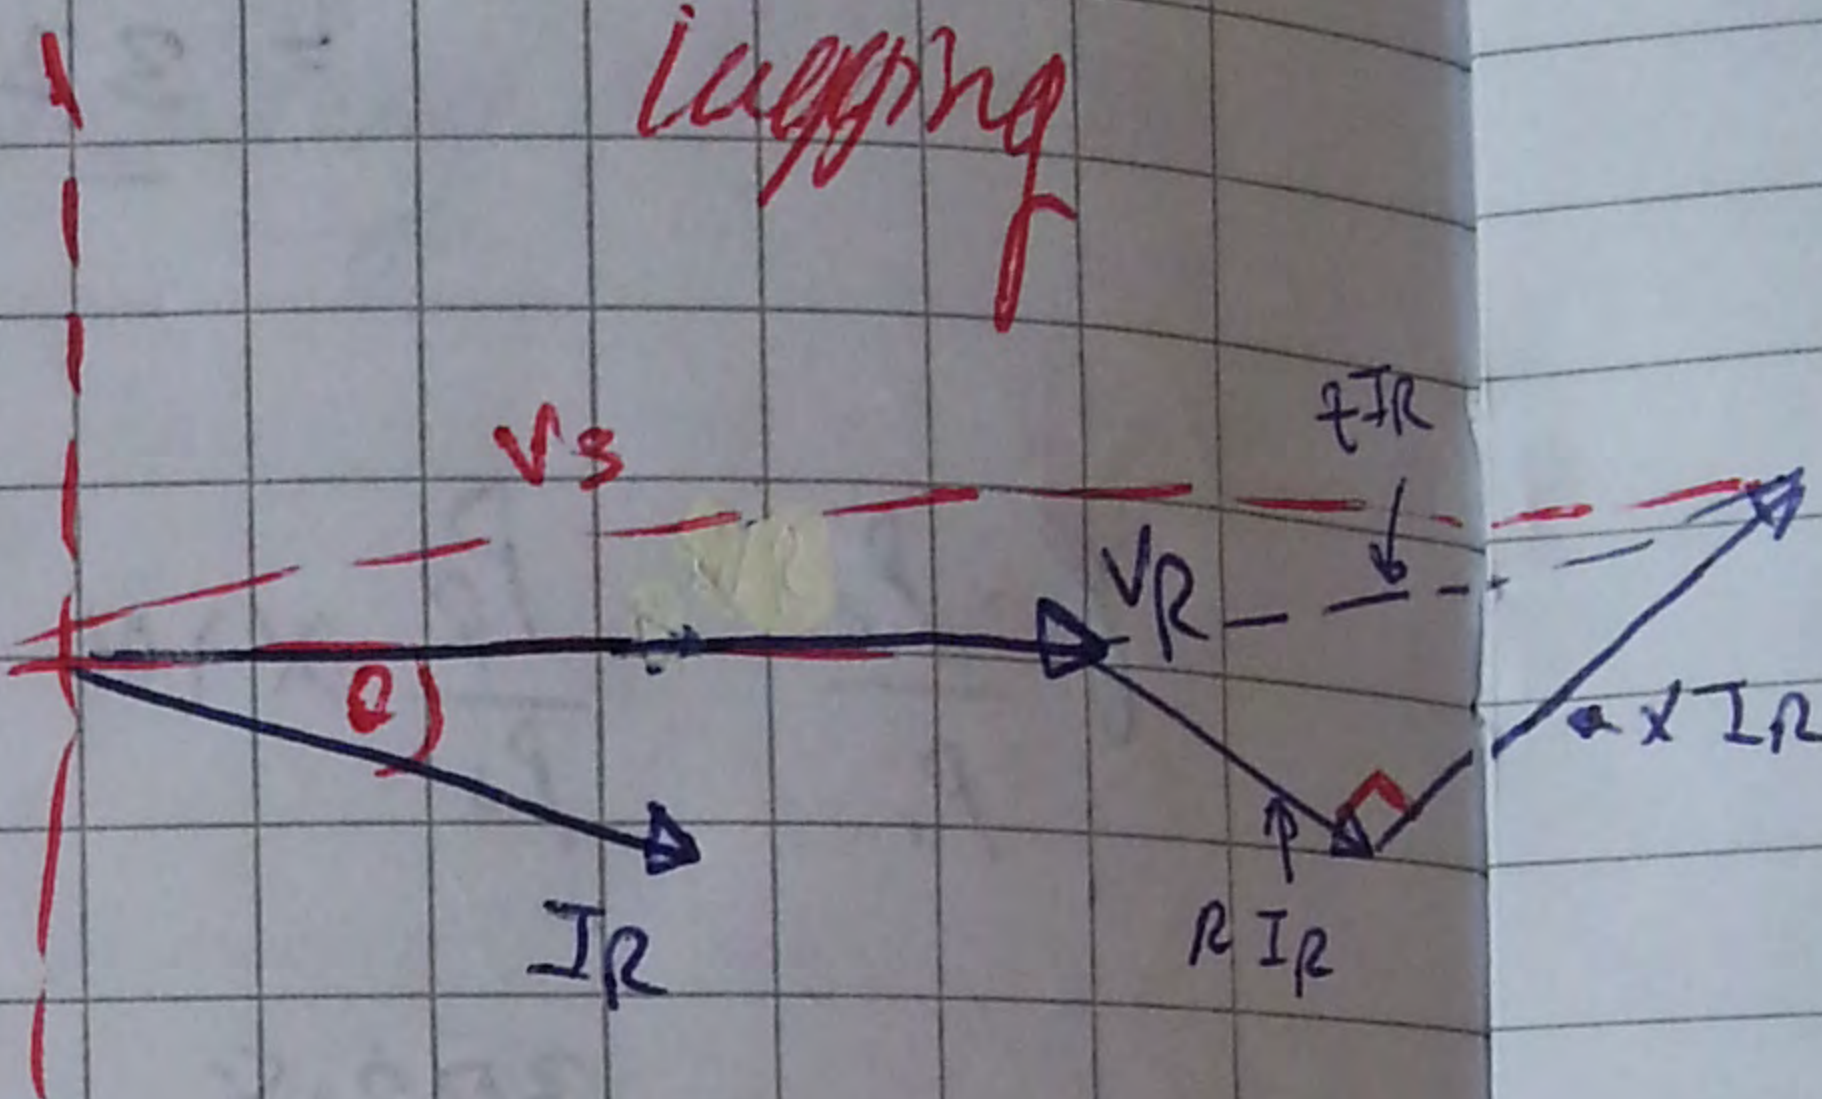 lagging
ZIR
Vs
VR
VR
θ)
X IR
IR
R IR